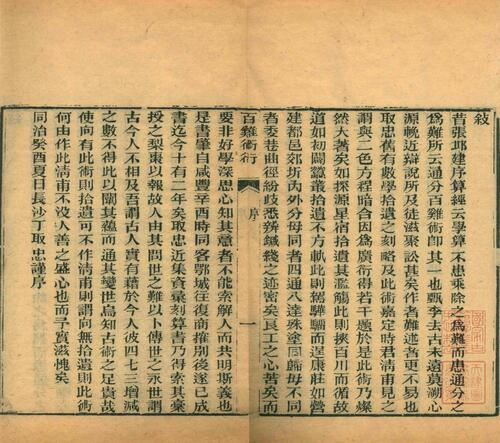 敘
昔張邱建序算經云學算不患乘除之為難而患通分之
為難所云通分百雞術即其一也甄李去古未遠莫溯心
源輓近辯說所及徒滋聚訟甚矣作者難述者更不易也
取忠舊有數學拾遺之刻略及此術嘉定時君清甫見之
謂與二色方程暗合因為廣衍得若干題於是此術乃燦
然大著矣如探源星宿拾遺其濫觴此則挾百川而循故
道如初闢蠶叢拾遺不方軌此則駕驊騮而逞康莊如營
建都邑郊圻內外分母同者四通八達殊塗同歸母不同
者委巷曲徑紛歧悉辨鍼綫之迹密矣良工之心苦矣而
百雞術衍 序 一
要非好學深思心知其意者不能索解人而共明斯義也
是書肇自咸豐辛酉時同客鄂城往復商搉別後遂已成
書迄今十有二年矣取忠近集資彙刻算書乃得索其稾
授之梨棗以報故人由其問世之難以卜傳世之永世謂
古今人不相及吾謂古人實有藉於今人彼四七三增減
之數不得此以闡其蘊而通其變世烏知古術之足貴哉
使向有此術則拾遺可不作清甫則謂向無拾遺則此術
何由作此清甫不沒人善之盛心也而予實滋愧矣
同治癸酉夏日長沙丁取忠謹序